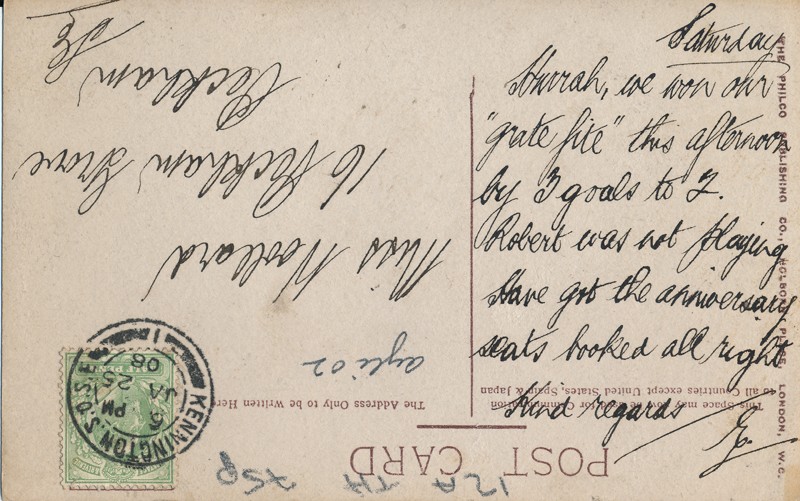 Saturday
Hurrah, we won our
"grate fite" this afternoon
by 3 goals to 2.
Robert was not playing
Have got the anniversary
seats booked all right
Kind regards
Miss Woollard
16 Peckham Grove
Peckham
SE
POST CARD
This Space may be used for Communication
to all Countries except United States, Spain & Japan
The Address Only to be Written Here
THE PHILCO PUBLISHING CO., HOLBORN PLACE, LONDON, W.C.
KENNINGTON S.O. S.E.
6 PM
JA 25
08
12A TH 75P